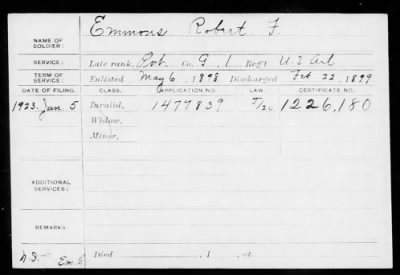 NAME OF SOLDIER: Emmons Robert F.
SERVICE: Late rank, Pvt. Co. G, 1 Reg't U.S. Art
TERM OF SERVICE: Enlisted May 6, 1898 Discharged Feb 22, 1899
DATE OF FILING. CLASS. APPLICATION NO. LAW. CERTIFICATE NO.
1923. Jan. 5 Invalid, 1477839 1226,180
Widow,
Minor,
ADDITIONAL SERVICES:
REMARKS:
Died , 1 , at